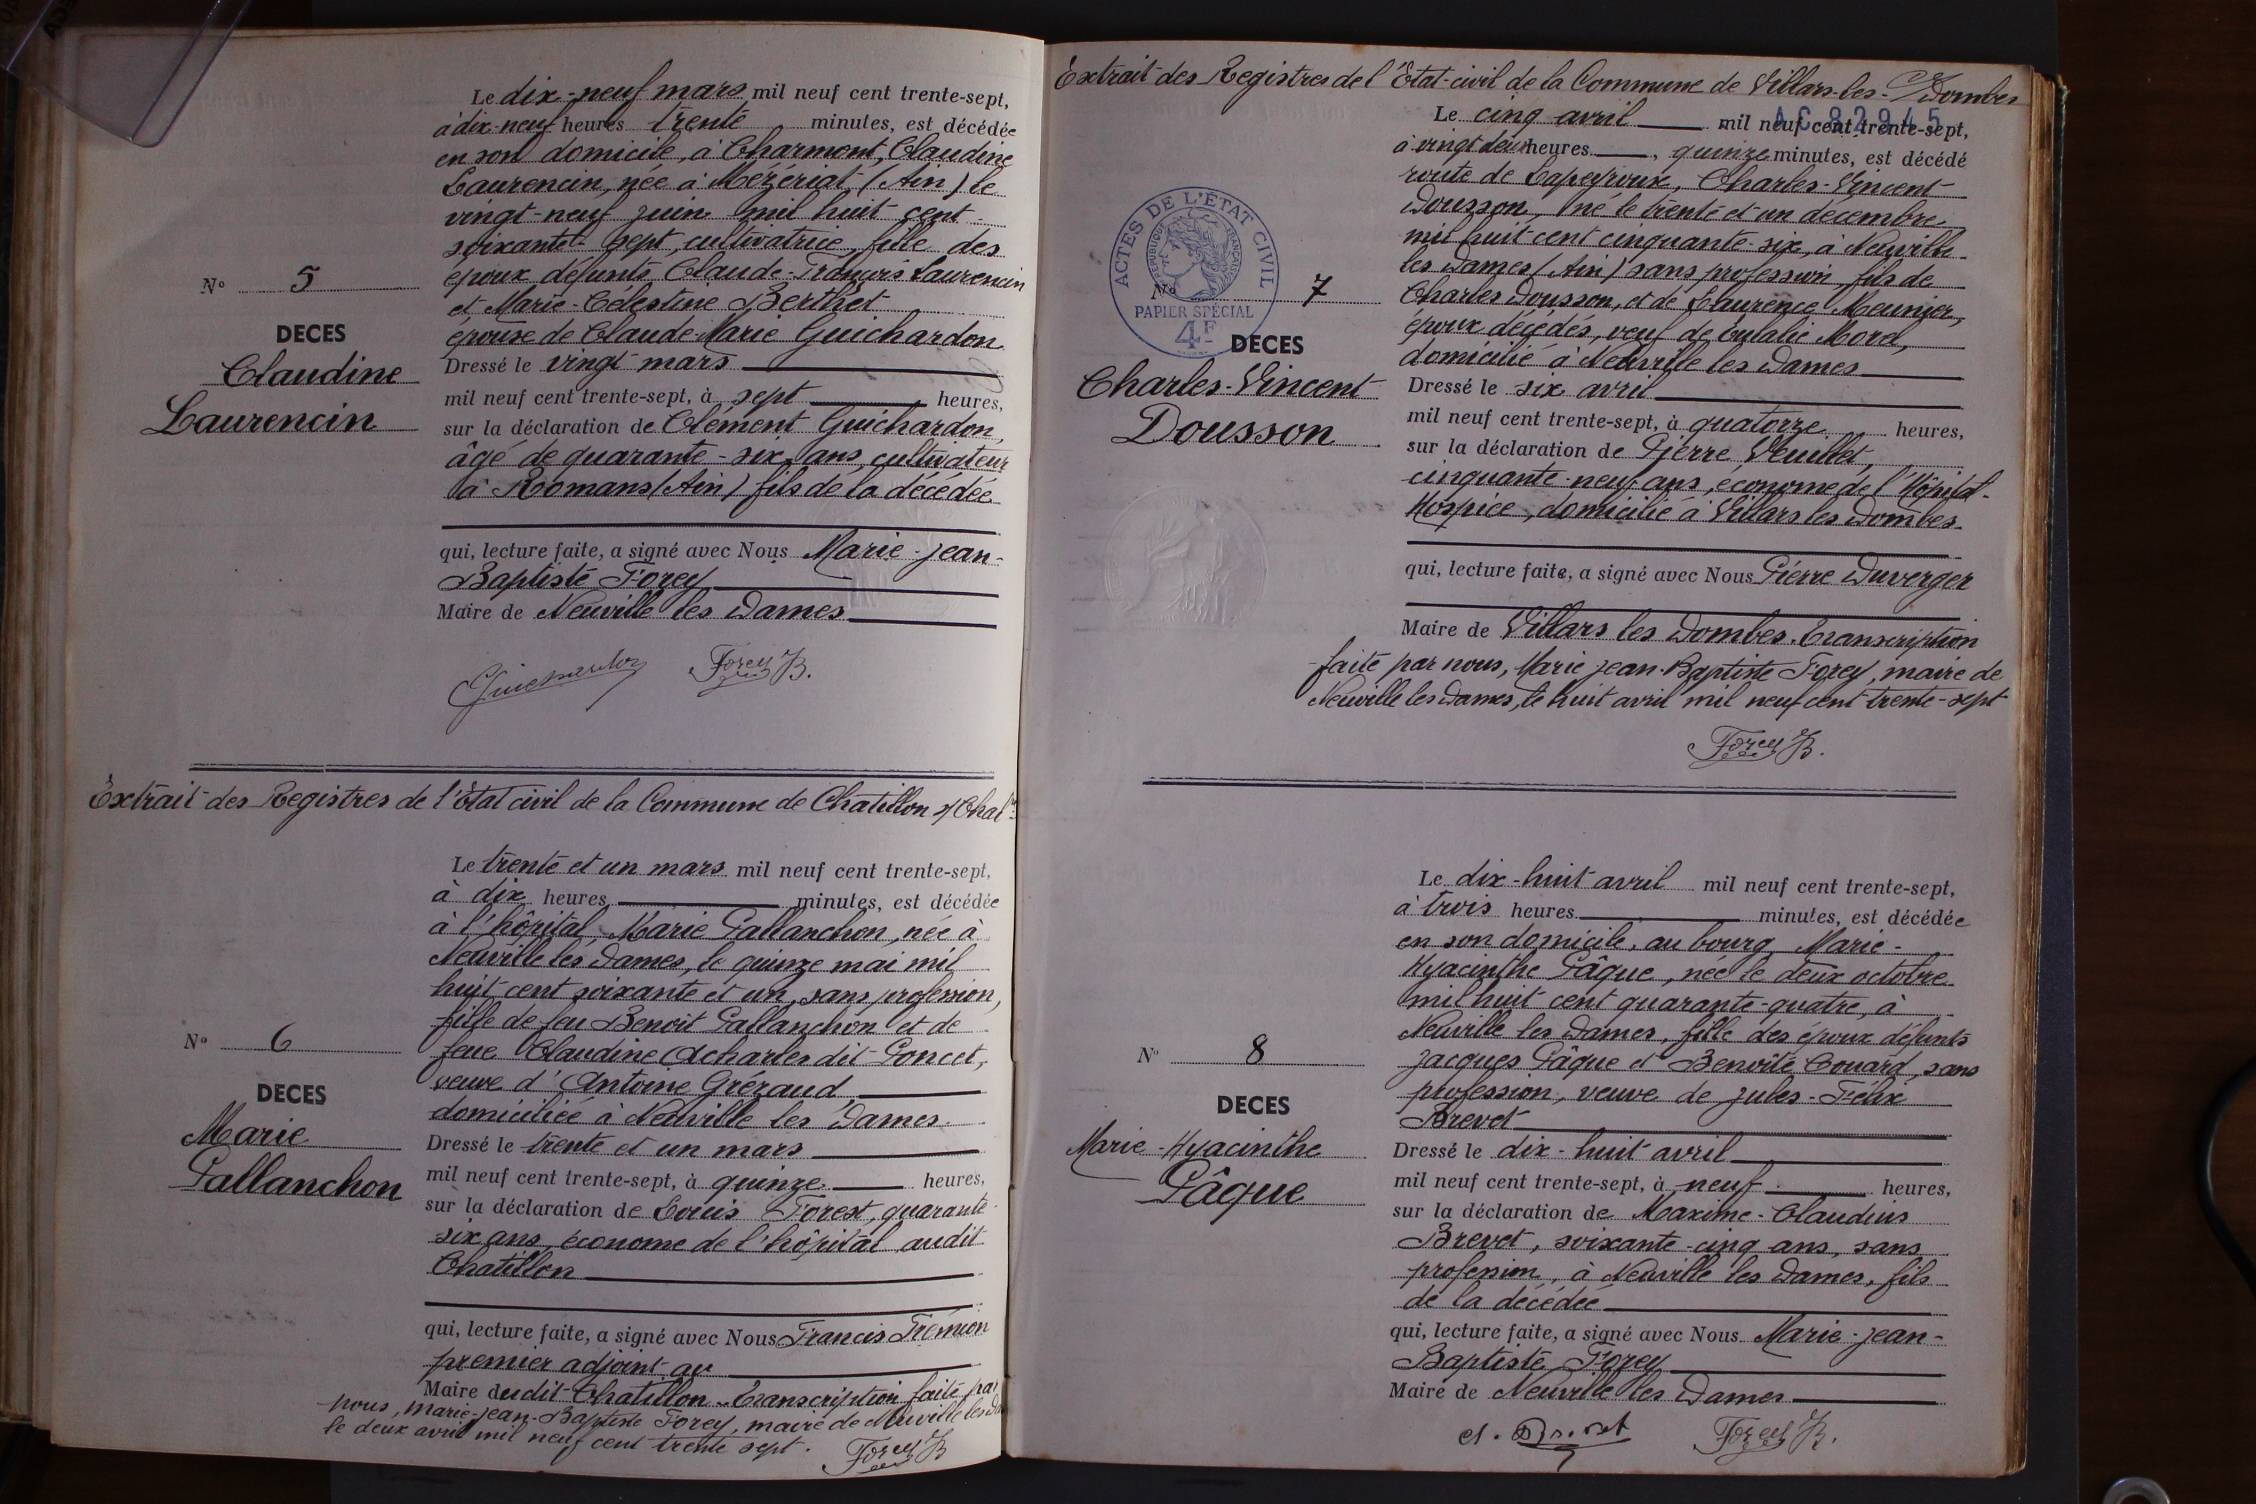 Le dix-neuf mars mil neuf cent trente-sept,
à dix-neuf heures trente minutes, est décédée
en son domicile, à Charmont, Claudine
Laurencin, née à Mézériat (Ain) le
vingt-neuf juin mil huit cent
soixante-sept, cultivatrice, fille des
époux défunts Claude-François Laurencin
et Marie-Célestine Berthet
épouse de Claude-Marie Guichardon
Dressé le vingt mars
mil neuf cent trente-sept, à sept heures,
sur la déclaration de Clément Guichardon,
âgé de quarante-six ans, cultivateur
à Romans (Ain) fils de la décédée
qui, lecture faite, a signé avec Nous Marie-Jean-
Baptiste Forey
Maire de Neuville les Dames
Forey B.
N° 5
DECES
Claudine
Laurencin
Extrait des Registres de l'Etat civil de la Commune de Chatillon s/ Chalne
Le trente et un mars mil neuf cent trente-sept,
à dix heures minutes, est décédée
à l'hôpital, Marie Pallanchon, née à
Neuville les Dames, le quinze mai mil
huit cent soixante et un, sans profession,
fille de feu Benoit Pallanchon et de
feue Claudine Acharles dit Poncet,
veuve d'Antoine Grézaud,
domiciliée à Neuville les Dames.
Dressé le trente et un mars
mil neuf cent trente-sept, à quinze heures,
sur la déclaration de Louis Forest, quarante-
six ans, économe de l'hôpital audit
Chatillon
qui, lecture faite, a signé avec Nous Francis Trémion
premier adjoint au
Maire dudit Chatillon. Transcription faite par
nous, Marie-Jean-Baptiste Forey, maire de Neuville les
le deux avril mil neuf cent trente sept.
Forey B
N° 6
DECES
Marie
Pallanchon
Extrait des Registres de l'Etat-civil de la Commune de Villars-les-Dombes
AC 82945
Le cinq avril mil neuf cent trente-sept,
à vingt deux heures, quinze minutes, est décédé
route de Lapeyrouse, Charles-Vincent
Dousson, né le trente et un décembre
mil huit cent cinquante-six, à Neuville
les Dames (Ain) sans profession, fils de
Charles Dousson, et de Laurence Meunier,
époux décédés, veuf de Eulalie Morel,
domicilié à Neuville les Dames
Dressé le six avril
mil neuf cent trente-sept, à quatorze heures,
sur la déclaration de Pierre Veuillet,
cinquante-neuf ans, économe de l'Hôpital-
Hospice, domicilié à Villars les Dombes.
qui, lecture faite, a signé avec Nous Pierre Duverger
Maire de Villars les Dombes. Transcription
faite par nous, Marie Jean-Baptiste Forey, maire de
Neuville les Dames, le huit avril mil neuf cent trente-sept
Forey B.
ACTES DE L'ÉTAT CIVIL
RÉPUBLIQUE FRANÇAISE
PAPIER SPÉCIAL
4F
N° 7
DECES
Charles-Vincent
Dousson
Le dix-huit avril mil neuf cent trente-sept,
à trois heures minutes, est décédée
en son domicile, au bourg Marie-
Hyacinthe Pâque, née le deux octobre
mil huit cent quarante-quatre, à
Neuville les Dames, fille des époux défunts
Jacques Pâque et Benoîte Couard, sans
profession, veuve de Jules-Félix
Brevet
Dressé le dix-huit avril
mil neuf cent trente-sept, à neuf heures,
sur la déclaration de Maxime-Claudius
Brevet, soixante-cinq ans, sans
profession, à Neuville les Dames, fils
de la décédée
qui, lecture faite, a signé avec Nous Marie-Jean-
Baptiste Forey
Maire de Neuville les Dames
Forey B.
N° 8
DECES
Marie-Hyacinthe
Pâque